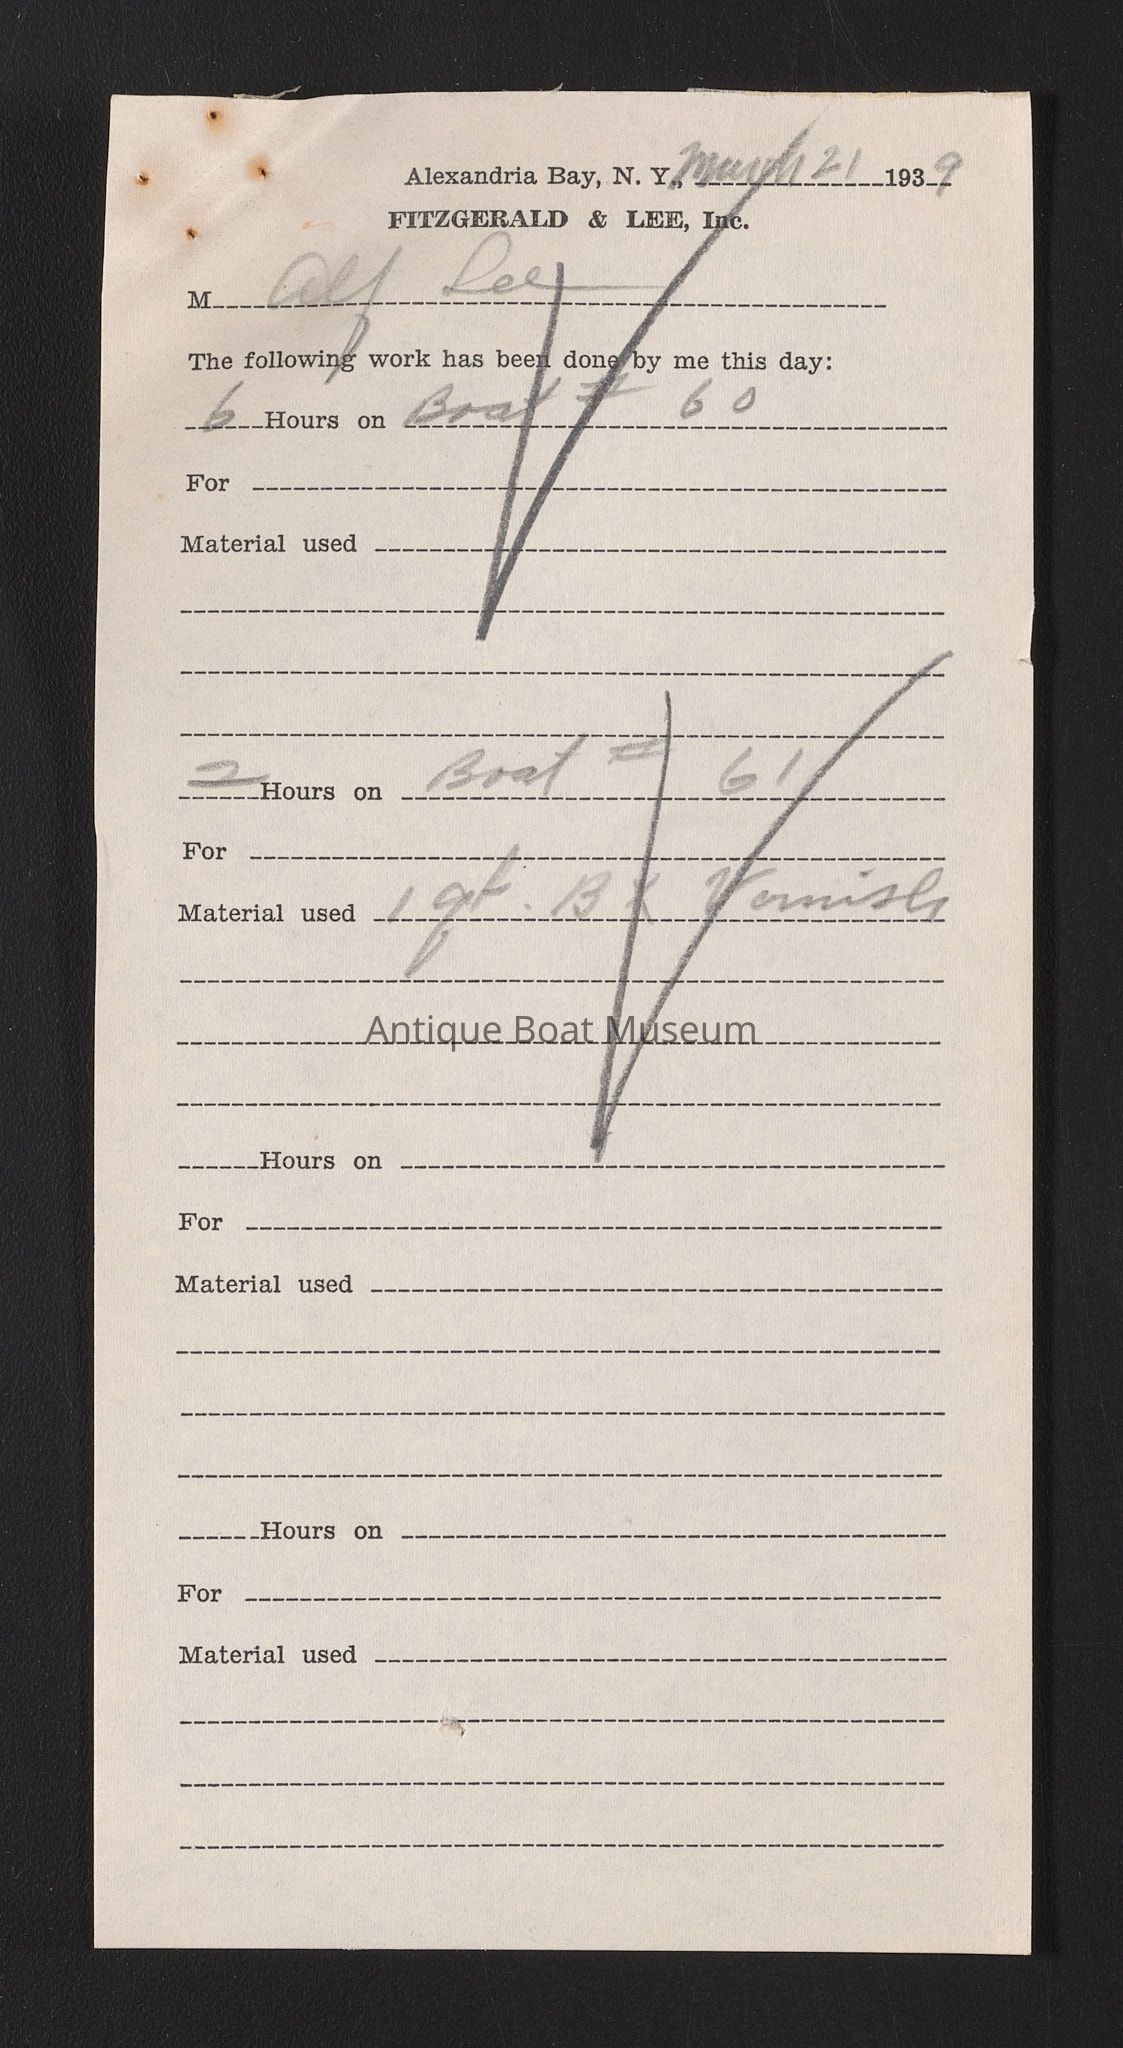 Alexandria Bay, N. Y., March 21 1939
FITZGERALD & LEE, Inc.
M Alf Lee
The following work has been done by me this day:
6 Hours on Boat # 60
For
Material used
2 Hours on Boat # 61
For
Material used 1 qt. B Vornish
Antique Boat Museum
Hours on
For
Material used
Hours on
For
Material used